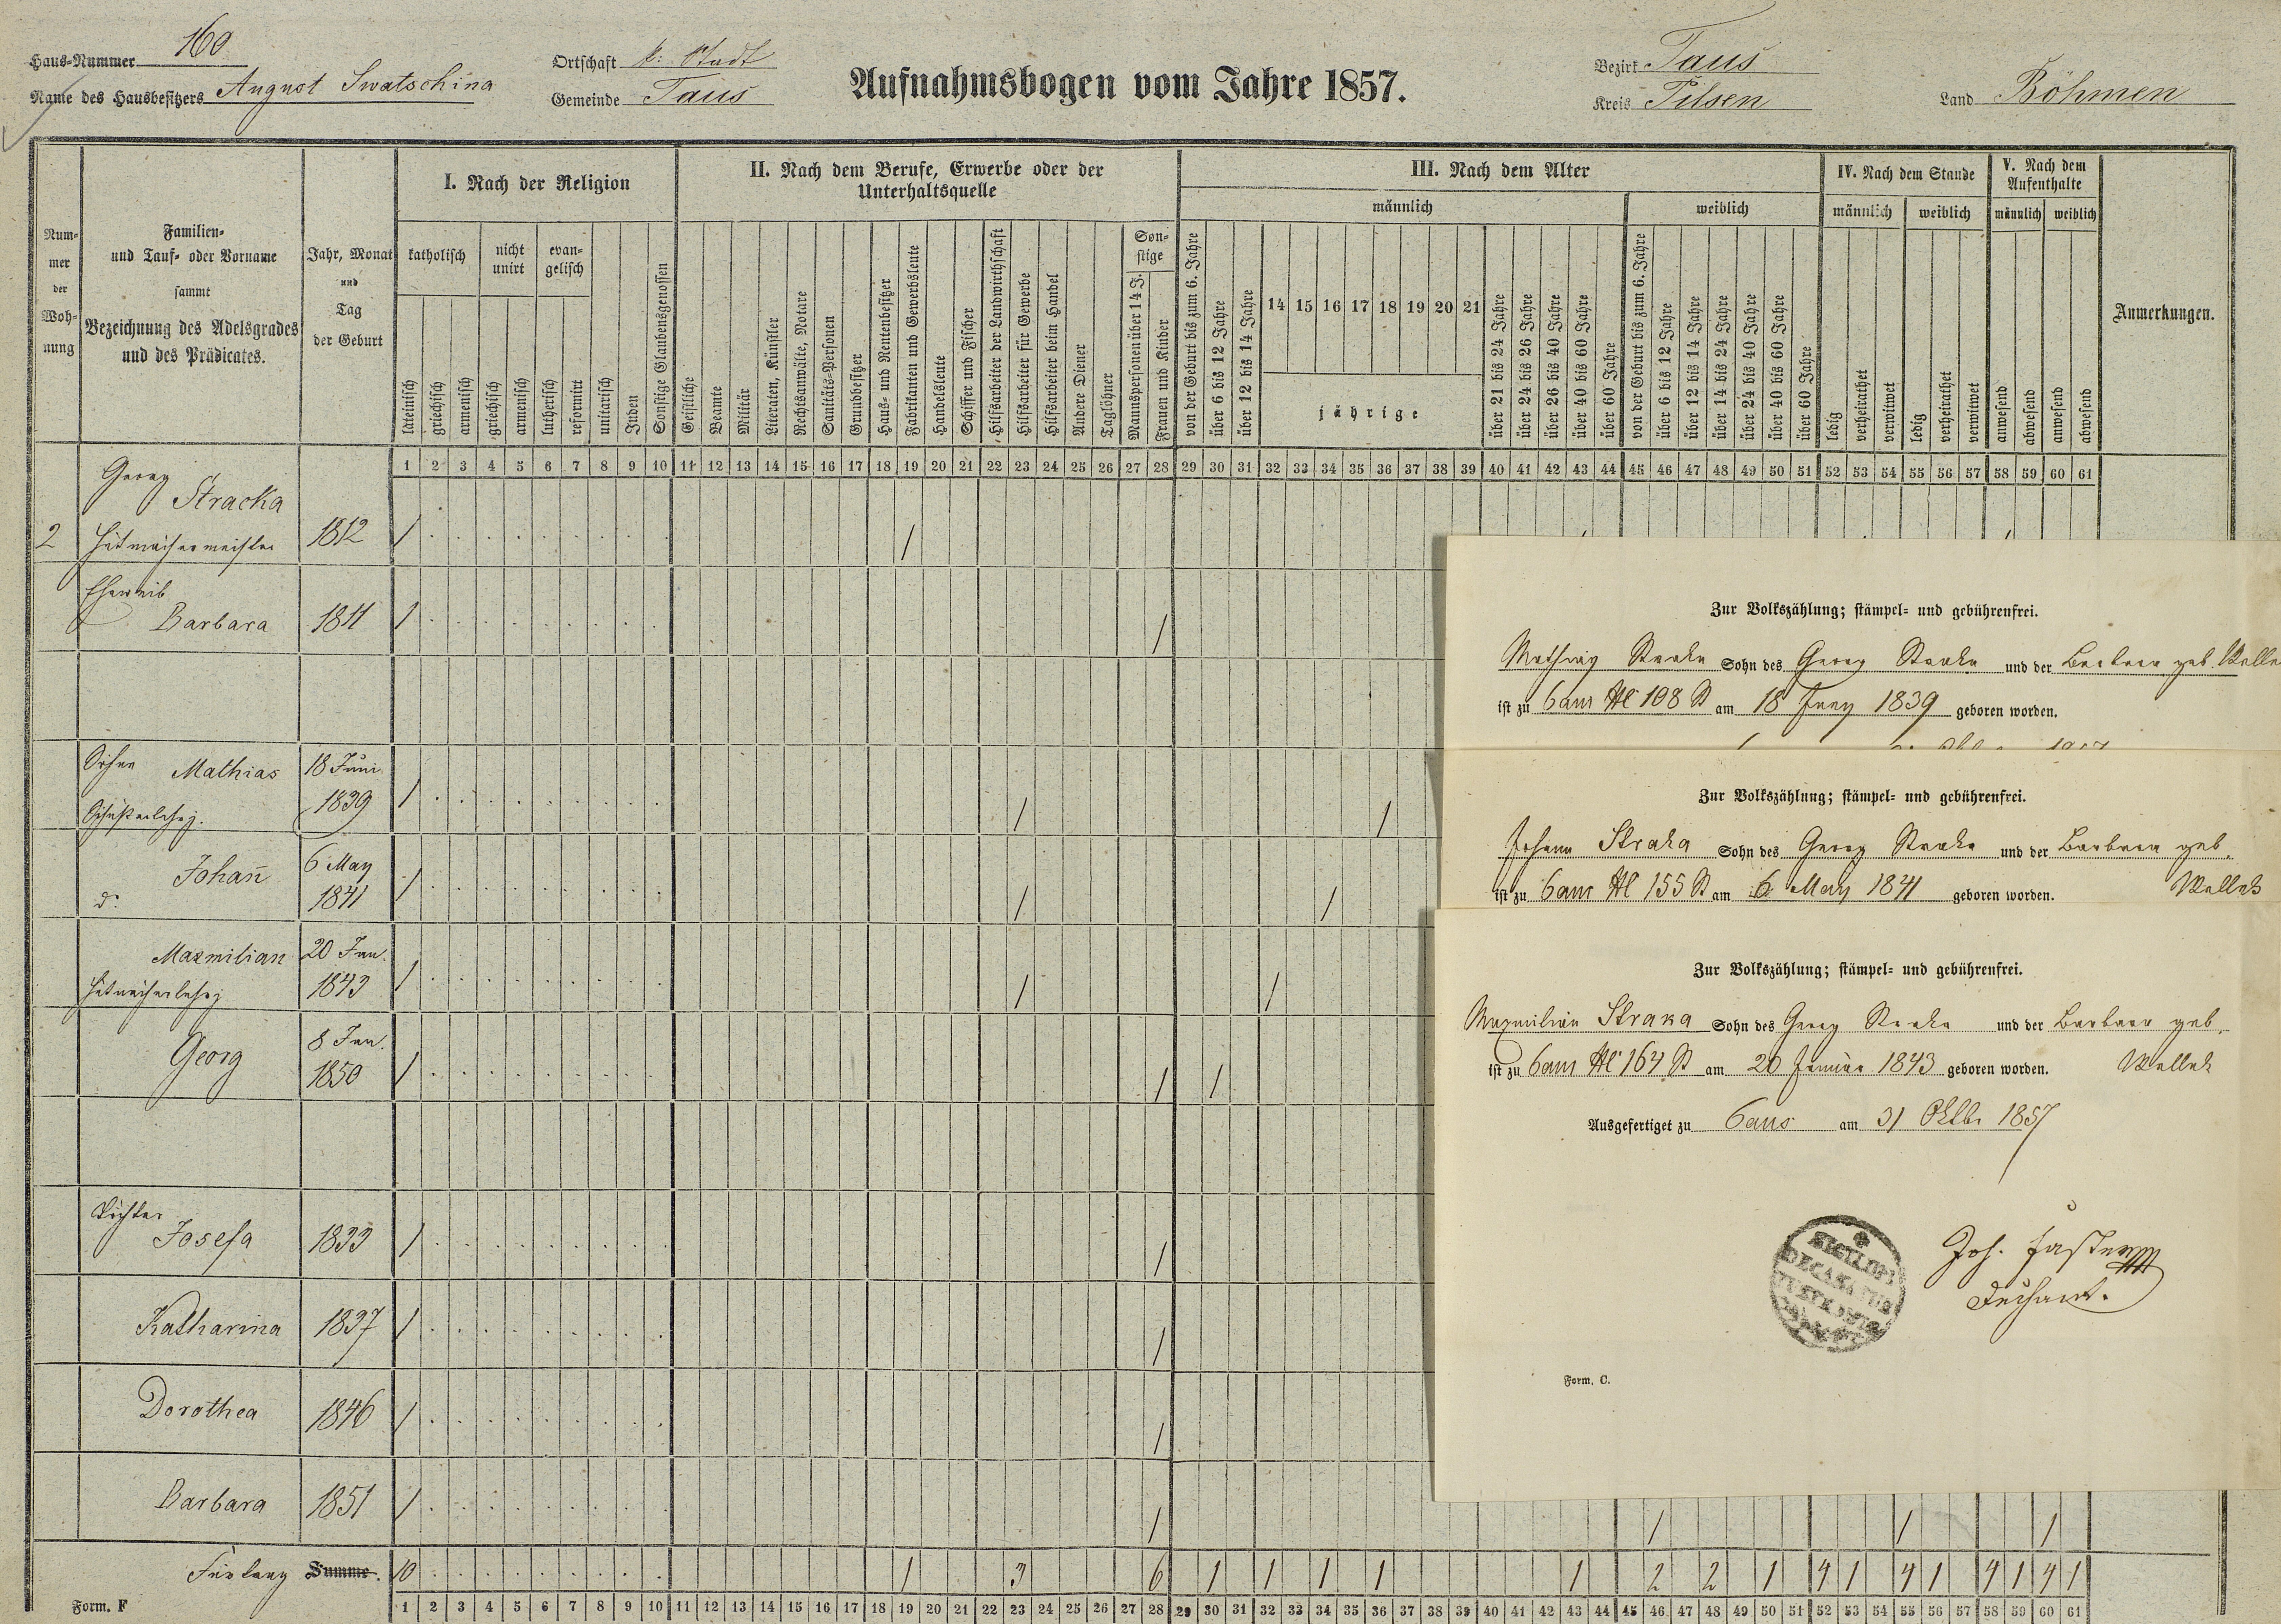 Haus-Nummer 160
Name des Hausbesitzers August Swatschina
Ortschaft k: Stadt
Gemeinde Taus
Aufnahmsbogen vom Jahre 1857.
Bezirk Taus
Kreis Pilsen
Land Böhmen
Nummer der Wohnung
Familien- und Tauf- oder Vorname sammt Bezeichnung des Adelsgrades und des Prädicates.
Jahr, Monat und Tag der Geburt
I. Nach der Religion
katholisch
nicht unirt
evangelisch
lateinisch
griechisch
armenisch
griechisch
armenisch
lutherisch
reformirt
unitarisch
Juden
Sonstige Glaubensgenossen
II. Nach dem Berufe, Erwerbe oder der Unterhaltsquelle
Geistliche
Beamte
Militär
Literaten, Künstler
Rechtsanwälte, Notare
Sanitäts-Personen
Grundbesitzer
Haus- und Rentenbesitzer
Fabrikanten und Gewerbsleute
Handelsleute
Schiffer und Fischer
Hilfsarbeiter der Landwirthschaft
Hilfsarbeiter für Gewerbe
Hilfsarbeiter beim Handel
Andere Diener
Taglöhner
Sonstige
Mannspersonen über 14 J.
Frauen und Kinder
III. Nach dem Alter
männlich
von der Geburt bis zum 6. Jahre
über 6 bis 12 Jahre
über 12 bis 14 Jahre
14 15 16 17 18 19 20 21
jährige
über 21 bis 24 Jahre
über 24 bis 26 Jahre
über 26 bis 40 Jahre
über 40 bis 60 Jahre
über 60 Jahre
weiblich
von der Geburt bis zum 6. Jahre
über 6 bis 12 Jahre
über 12 bis 14 Jahre
über 14 bis 24 Jahre
über 24 bis 40 Jahre
über 40 bis 60 Jahre
über 60 Jahre
IV. Nach dem Stande
männlich weiblich
ledig
verheirathet
verwitwet
ledig
verheirathet
verwitwet
V. Nach dem Aufenthalte
männlich weiblich
anwesend
abwesend
anwesend
abwesend
Anmerkungen.
1 2 3 4 5 6 7 8 9 10 11 12 13 14 15 16 17 18 19 20 21 22 23 24 25 26 27 28 29 30 31 32 33 34 35 36 37 38 39 40 41 42 43 44 45 46 47 48 49 50 51 52 53 54 55 56 57 58 59 60 61
Georg
Stracka
2 Hutmachermeister 1812 1 1
Eheweib
Barbara 1811 1 1
Söhne Mathias 18 Juni
1839 1 1 1
Johann 6 May
d: 1841 1 1 1
Maxmilian 20 Jan.
1843 1 1 1
Georg 8 Jan.
1850 1 1 1
Töchter
Josefa 1833 1 1
Katharina 1837 1 1
Dorothea 1846 1 1
Barbara 1851 1 1 1 1 1
Fürlang Summe. 10 1 3 6 1 1 1 1 1 2 2 1 4 1 4 1 4 1 4 1
Form. F
1 2 3 4 5 6 7 8 9 10 11 12 13 14 15 16 17 18 19 20 21 22 23 24 25 26 27 28 29 30 31 32 33 34 35 36 37 38 39 40 41 42 43 44 45 46 47 48 49 50 51 52 53 54 55 56 57 58 59 60 61
Zur Volkszählung; stämpel- und gebührenfrei.
Mathias Straka Sohn des Georg Straka und der Barbara geb.
ist zu Taus N 108 St am 18 Juny 1839 geboren worden.
Zur Volkszählung; stämpel- und gebührenfrei.
Johann Straka Sohn des Georg Straka und der Barbara geb.
ist zu Taus N 155 St am 6 May 1841 geboren worden. Wellek
Zur Volkszählung; stämpel- und gebührenfrei.
Maxmilian Straka Sohn des Georg Straka und der Barbara geb.
ist zu Taus N 164 St am 20 Januar 1843 geboren worden. Wellek
Ausgefertiget zu Taus am 31 Oktb. 1857
Joh. Faster
Dechant.
Form. C.